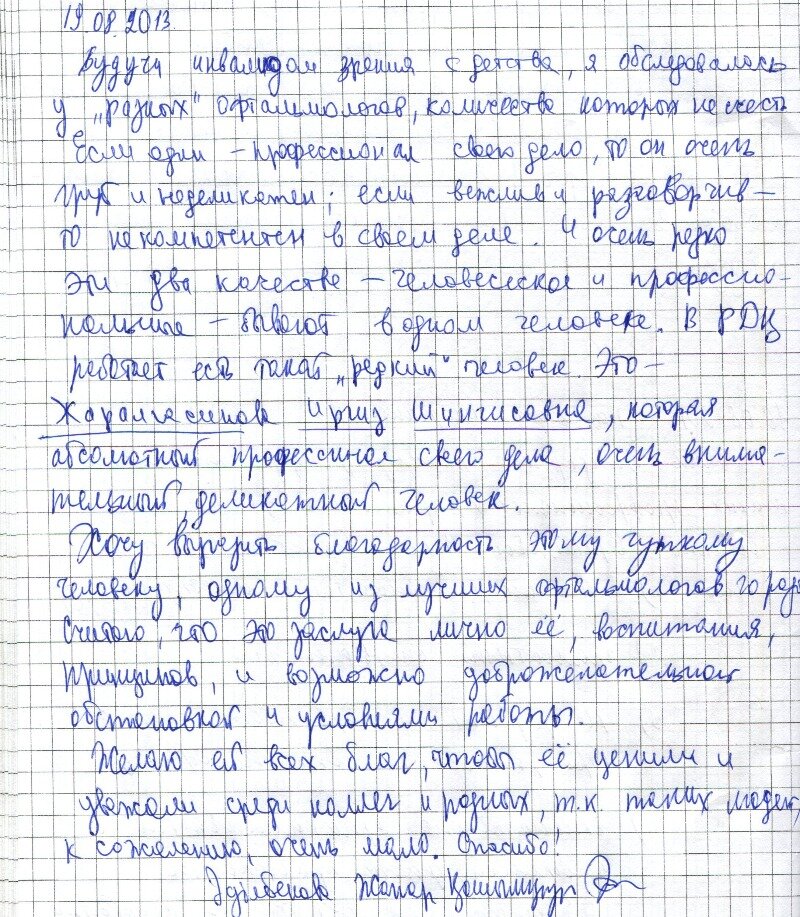 19.08.2013.
Будучи инвалидом зрения с детства, я обследовалась
у „разных" офтальмологов, количества которых не счесть
Если один – профессионал своего дело, то он очень
груб и неделикатен; если вежлив и разговорчив –
то некомпетентен в своем деле. И очень редко
эти два качества – человеческое и профессио-
нальные – бывают в одном человеке. В РДЦ
работает есть такой „редкий" человек. Это –
Жаралгасинова Иргиз Шингисовна, которая
абсолютный профессинал своего дела, очень внима-
тельный, деликатный человек.
Хочу выразить благодарность этому чуткому
человеку, одному из лучших офтальмологов города
Считаю, что это заслуга лично её, воспитания,
принципов, и возможно доброжелательной
обстановкой и условиями работы.
Желаю ей всех благ, чтобы её ценили и
уважали среди коллег и родных, т.к. таких людей,
к сожалению, очень мало. Спасибо!
Әділбекова Жанар